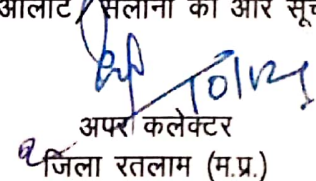 आलोट / सैलाना की ओर सूच
अपर कलेक्टर
जिला रतलाम (म.प्र.)